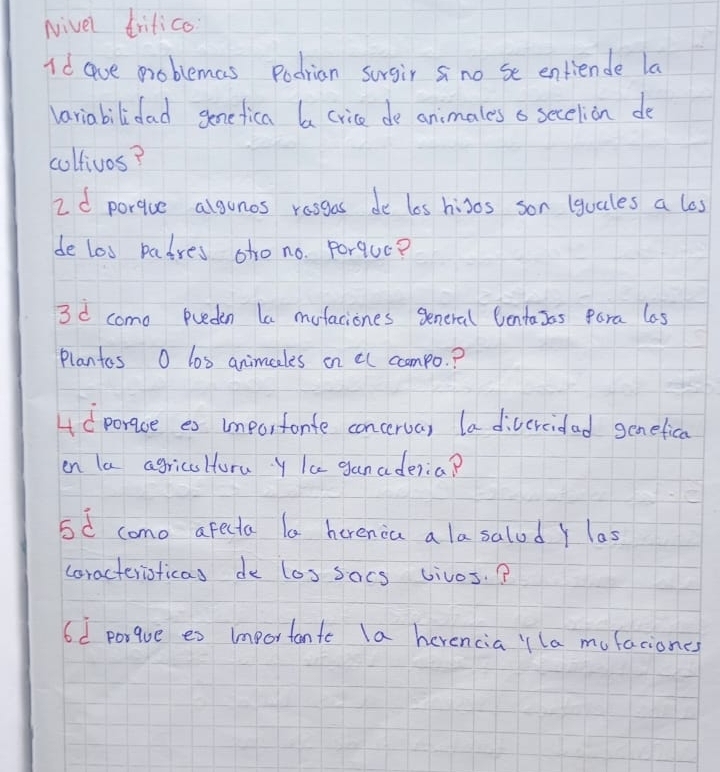 Nivel critico:
1 ¿ Que problemas Podrian surgir si no se entiende la
variabilidad genetica la cria de animales o secelión de
cultivos?
2 ¿ porque algunos rasgos de los hijos son iguales a los
de los padres otro no. Porque?
3 ¿ como pueden la mutaciones general ventajas Para las
Plantas O los animales en el campo.?
4 ¿ porque es importante concervar la divercidad genetica
en la agricultura y la ganaderia?
5 ¿ como afecta la herencia a la salud y las
caracteristicas de los sacs vivos.?
6 ¿ porque es importante la herencia y la mutaciones